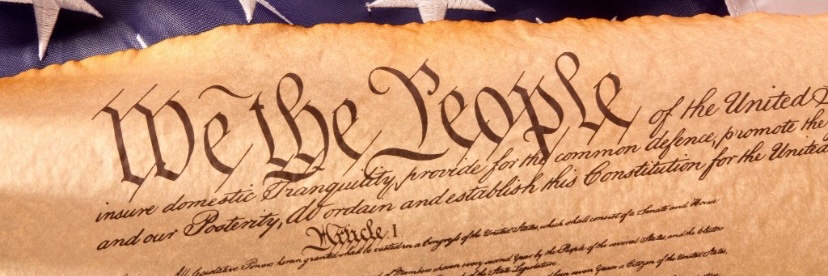 We the People of the United
insure domestic Tranquility, provide for the common defence, promote the
and our Posterity, do ordain and establish this Constitution for the United
Article I
All legislative Powers herein granted shall be vested in a Congress of the United States, which shall consist of a Senate and House
chosen every second Year by the People of the several States, and the
State Legislature.
Years a Citizen of the United States,